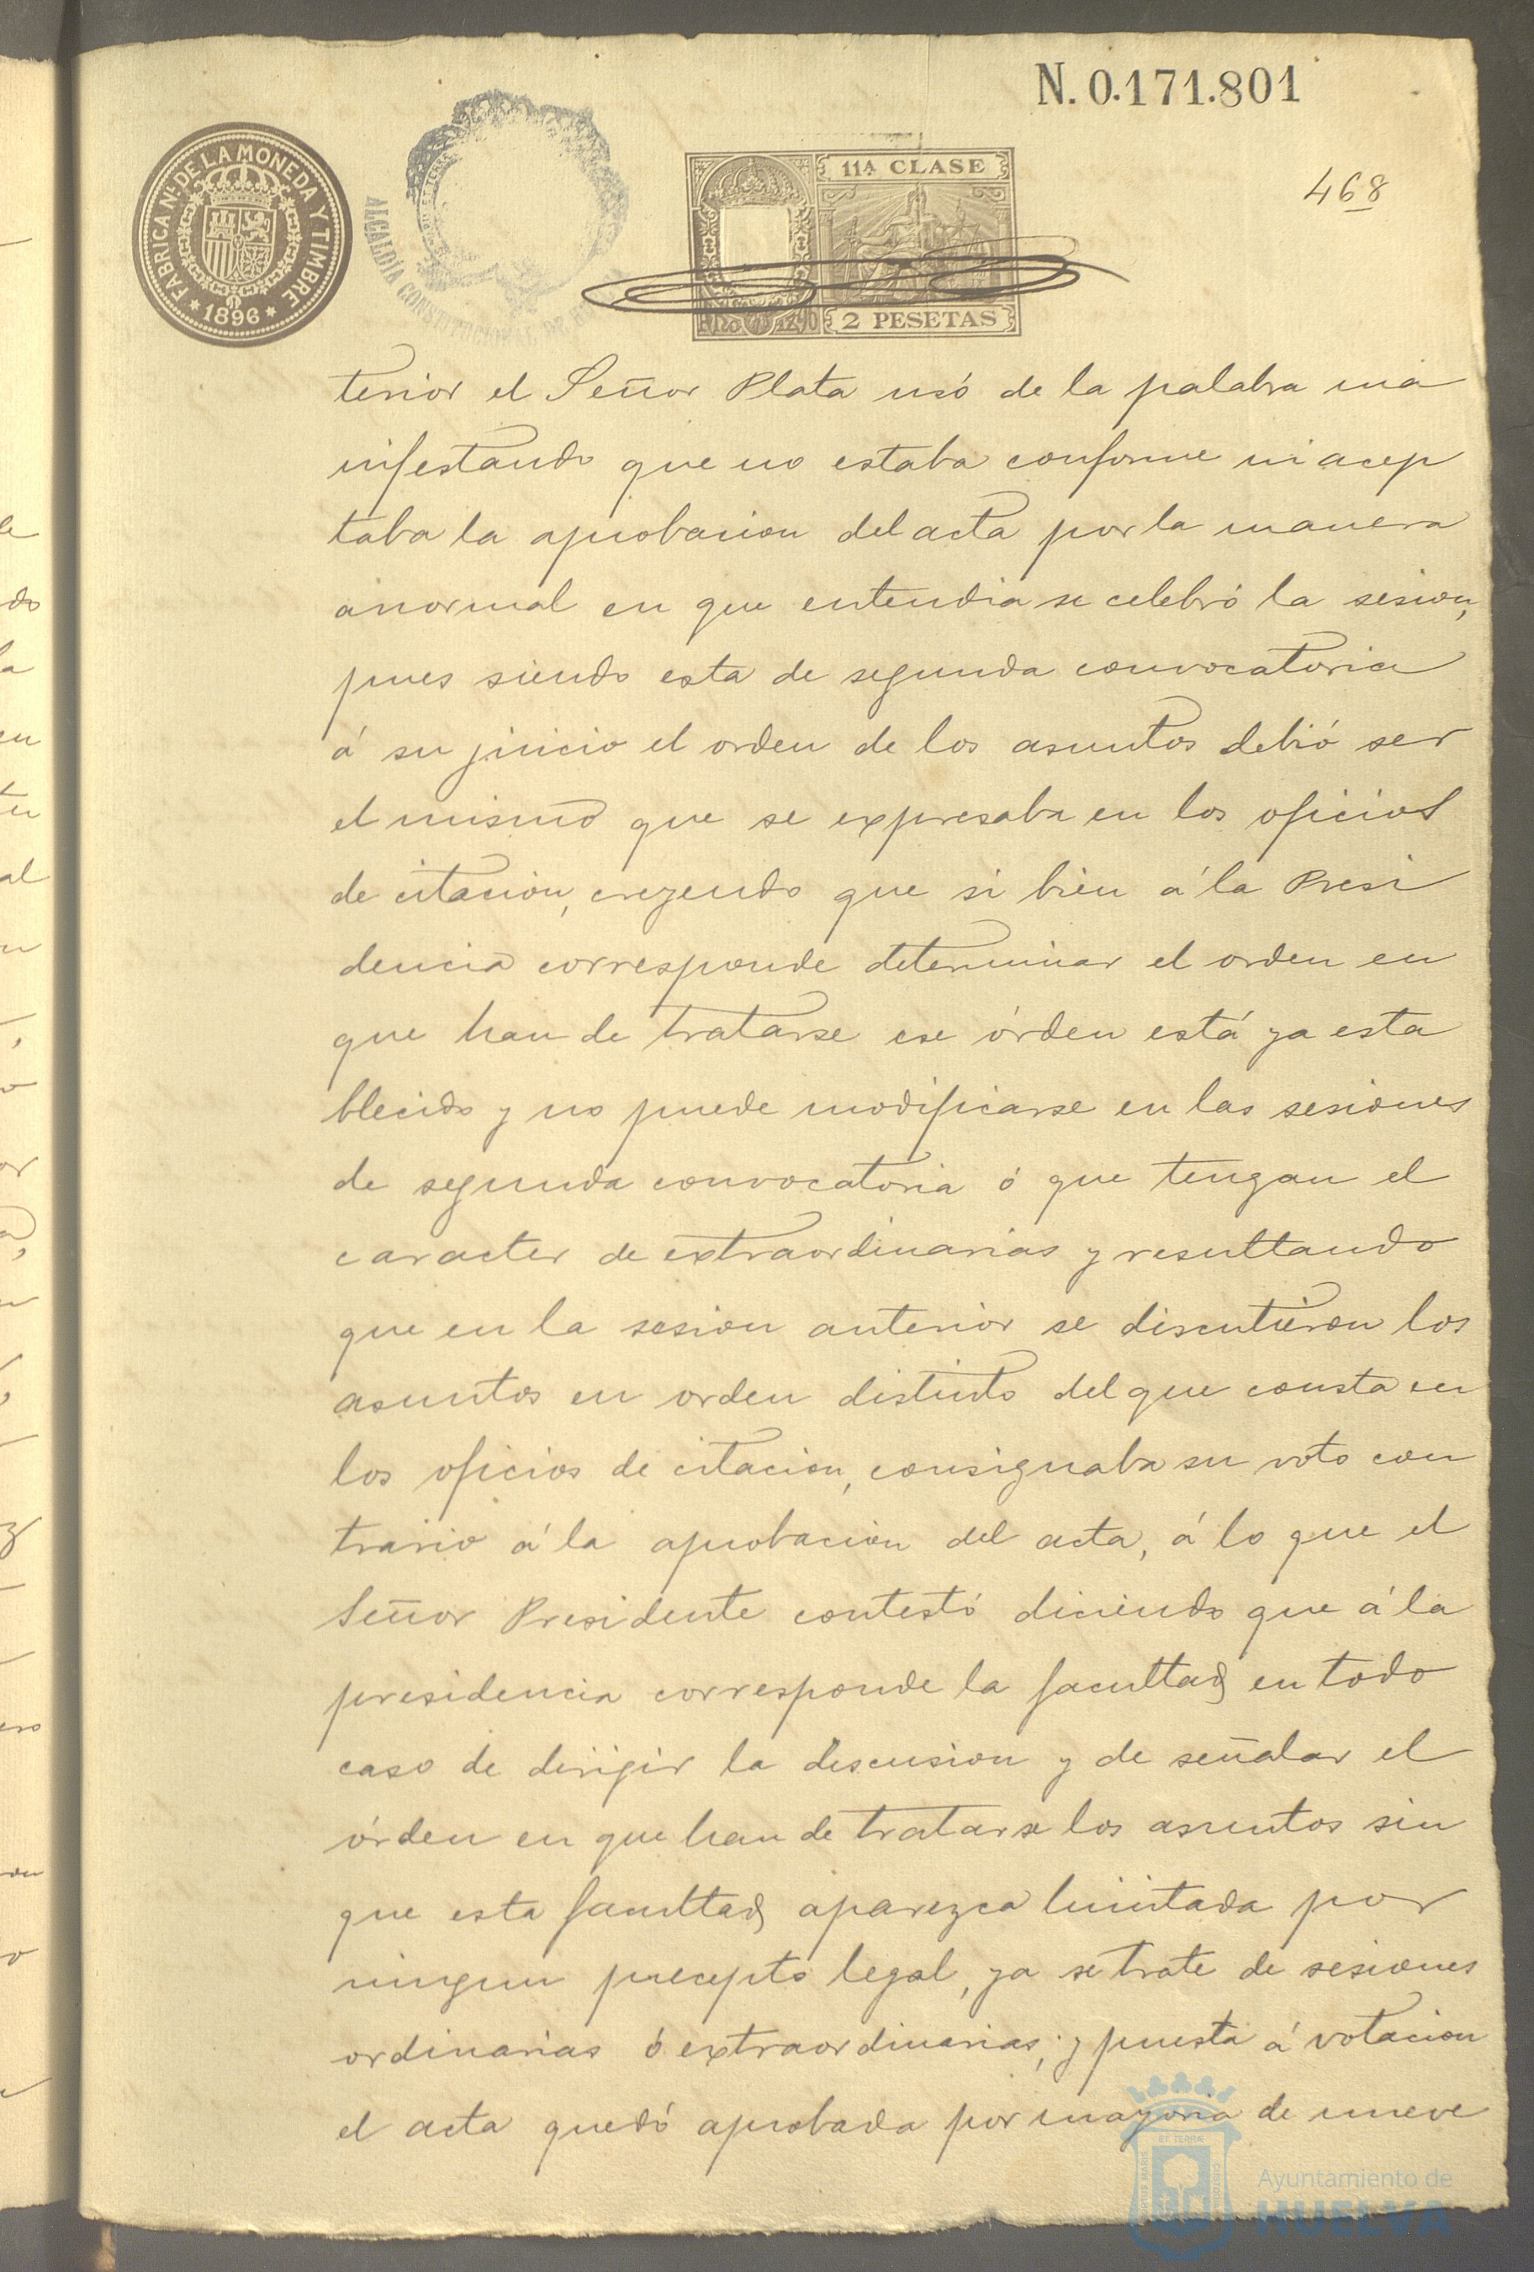 N. 0.171.801
FABRICA Nᴸ DE LA MONEDA Y TIMBRE
* 1896 *
ALCALDÍA CONSTITUCIONAL DE
11ᴬ CLASE
2 PESETAS
468
terior el Señor Plata usó de la palabra ma
nifestando que no estaba conforme ni acep
taba la aprobacion del acta por la manera
anormal en que entendia se celebró la sesion,
pues siendo esta de segunda convocatoria
á su juicio el orden de los asuntos debió ser
el mismo que se expresaba en los oficios
de citacion, creyendo que si bien á la Presi
dencia corresponde determinar el orden en
que han de tratarse ese órden está ya esta
blecido y no puede modificarse en las sesiones
de segunda convocatoria ó que tengan el
caracter de extraordinarias y resultando
que en la sesion anterior se discutieron los
asuntos en orden distinto del que consta en
los oficios de citacion, consignaba su voto con
trario á la aprobacion del acta, á lo que el
Señor Presidente contestó diciendo que á la
presidencia corresponde la facultad en todo
caso de dirigir la discusion y de señalar el
órden en que han de tratarse los asuntos sin
que esta facultad aparezca limitada por
ningun precepto legal, ya se trate de sesiones
ordinarias ó extraordinarias; y puesta á votacion
el acta quedó aprobada por mayoria de nueve
Ayuntamiento de
HUELVA